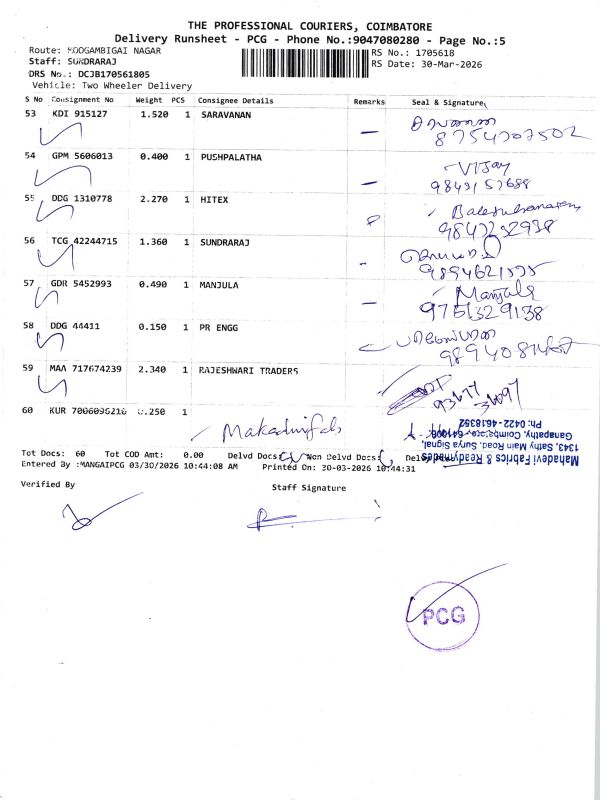 THE PROFESSIONAL COURIERS, COIMBATORE
Delivery Runsheet - PCG - Phone No.:9047080280 - Page No.:5
Route: MOOGAMBIGAI NAGAR RS No.: 1705618
Staff: SUNDRARAJ RS Date: 30-Mar-2026
DRS No.: DCJB170561805
Vehicle: Two Wheeler Delivery
S No Consignment No Weight PCS Consignee Details Remarks Seal & Signature
53 KDI 915127 1.520 1 SARAVANAN
8754707502
54 GPM 5606013 0.400 1 PUSHPALATHA
Vijay
9843157688
55 DDG 1310778 2.270 1 HITEX
9843232938
56 TCG 42244715 1.360 1 SUNDRARAJ
57 GDR 5452993 0.490 1 MANJULA
Manjula
9751329138
58 DDG 44411 0.150 1 PR ENGG
59 MAA 717674239 2.340 1 RAJESHWARI TRADERS
60 KUR 7006096216 0.250 1
Mahadevi Fabrics & Readymades
1343, Sathy Main Road, Surya Signal,
Ganapathy, Coimbatore-641006.
Ph: 0422-4518352
Tot Docs: 60 Tot COD Amt: 0.00 Delvd Docs: Non Delvd Docs:
Entered By :MANGAIPCG 03/30/2026 10:44:08 AM Printed On: 30-03-2026 10:44:31
Verified By Staff Signature
PCG